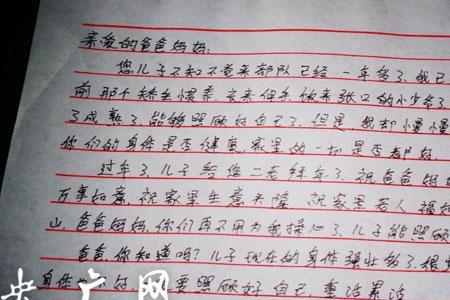 亲爱的爸爸妈妈:
您儿子不知不觉来部队已经一年多了,我已
前那个娇生惯养衣来伸手饭来张口的小少爷了
了成熟了,能够照顾好自己了,但是,我却慢慢
你们的身体是否健康,家里的一切是否都好,
过年了,儿子给您二老拜年了,祝爸爸妈妈
万事如意,祝家里生意兴隆,祝家里老人福如
山,爸爸妈妈,你们再不用为我操心了,儿子能照顾
爸爸,你知道吗?儿子现在的身体强壮多了,很
身体 好, 要照顾好自己,
央广网